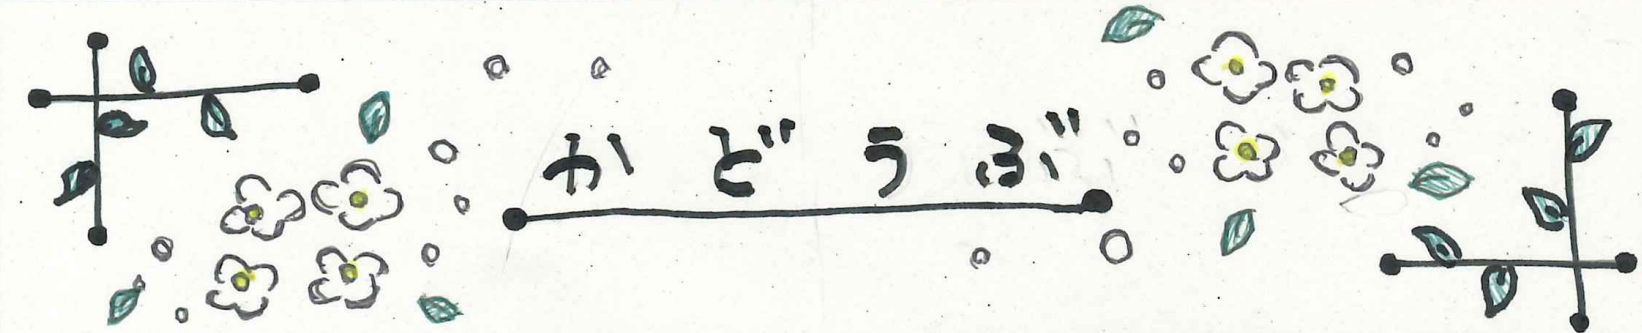 かどうぶ